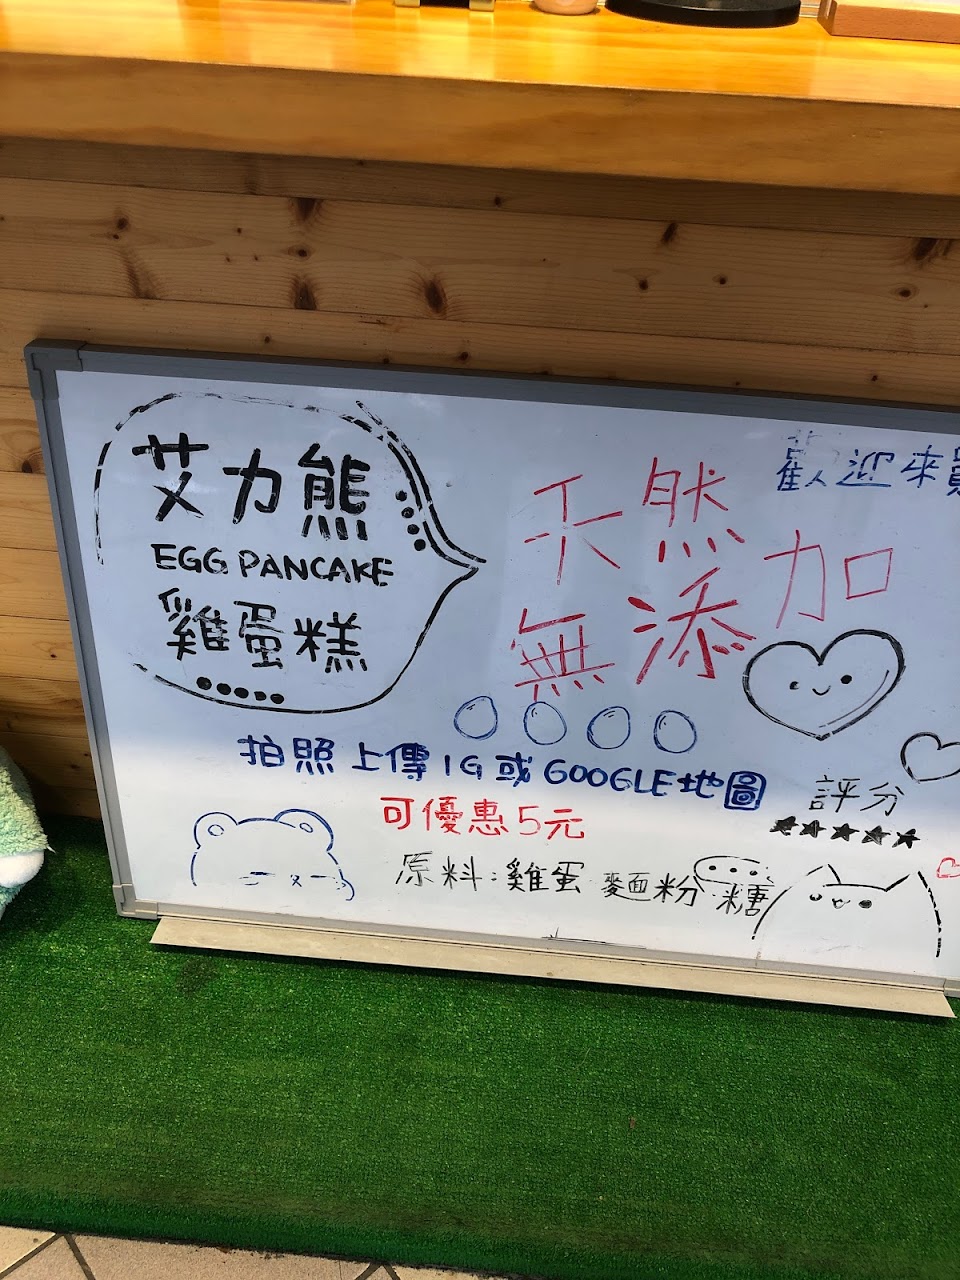 艾力熊
EGG PANCAKE
雞蛋糕
天然
無添加
歡迎來
拍照上傳IG或GOOGLE地圖
可優惠5元
評分
★★★★★
原料:雞蛋 麵粉 糖